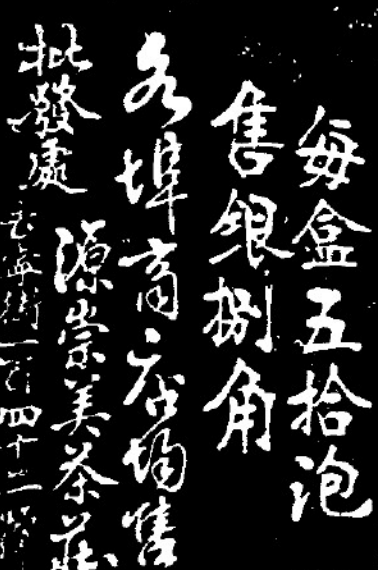 每盒五拾泡
售銀捌角
各埠商店均售
批發處
源崇美茶莊
長寧街一百四十二號